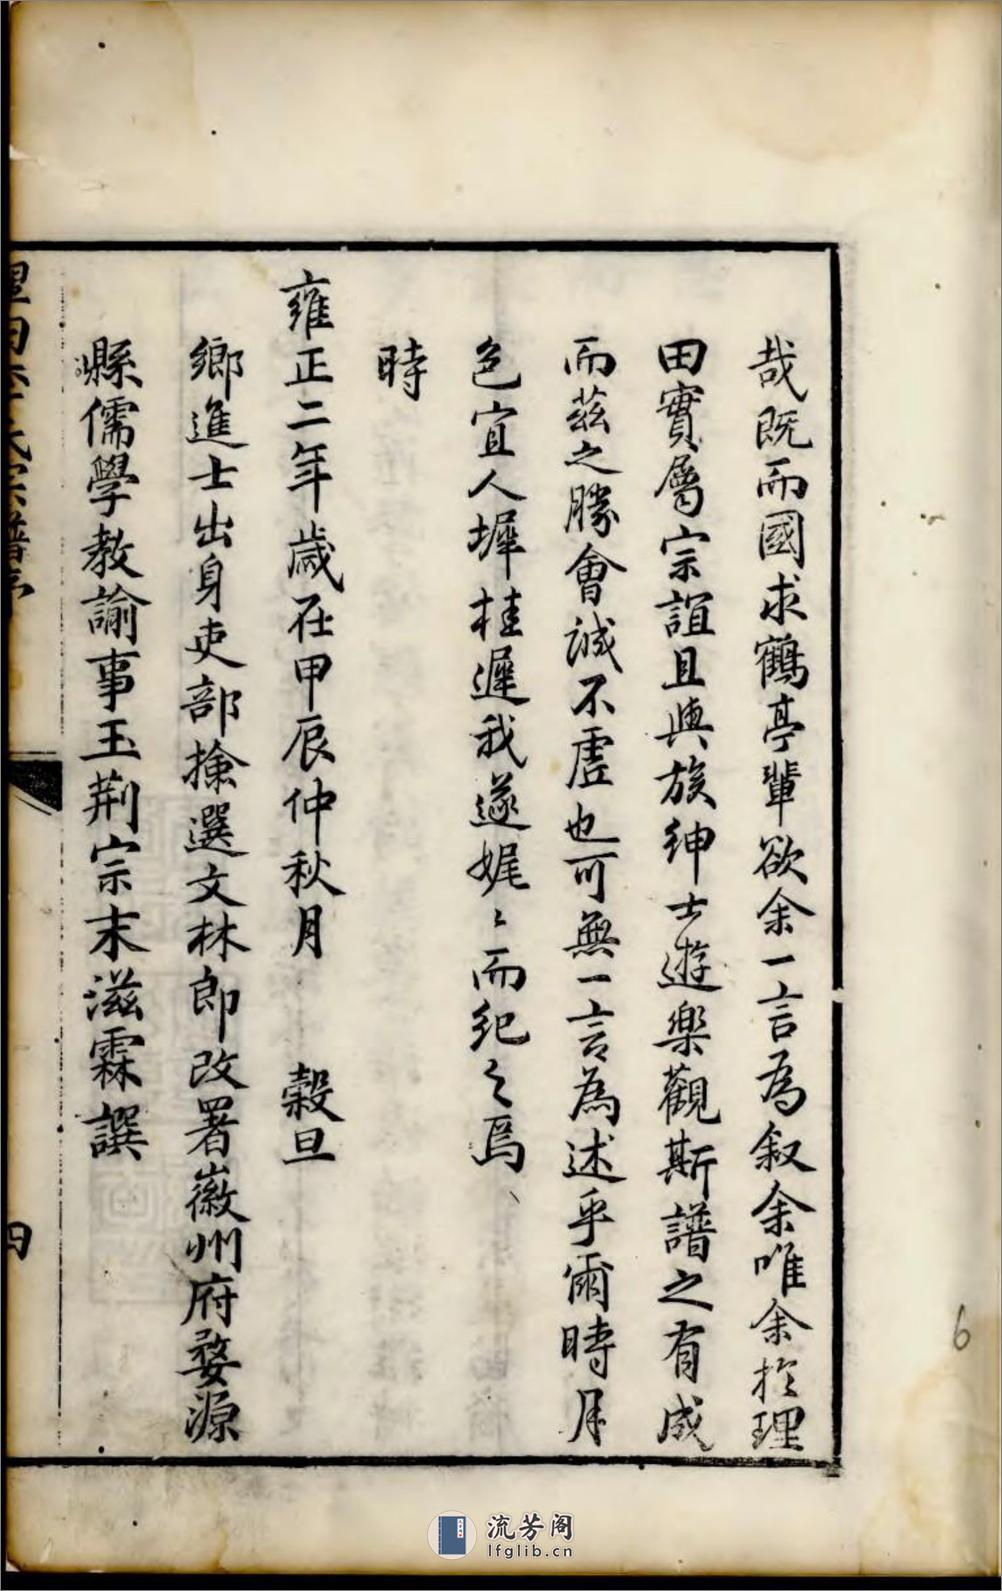 哉既而國求鶴亭輩欲余一言為叙余唯余於理
田實屬宗誼且與族紳士遊樂觀斯譜之有成
而茲之勝會誠不虛也可無一言為述乎爾時月
色宜人墀桂遲我遂娓〻而紀之焉
時
雍正二年歲在甲辰仲秋月 穀旦
鄉進士出身吏部揀選文林郎改署徽州府婺源
縣儒學教諭事玉荆宗末滋霖譔
理田李氏宗譜序
四
6
流芳阁
lfglib.cn